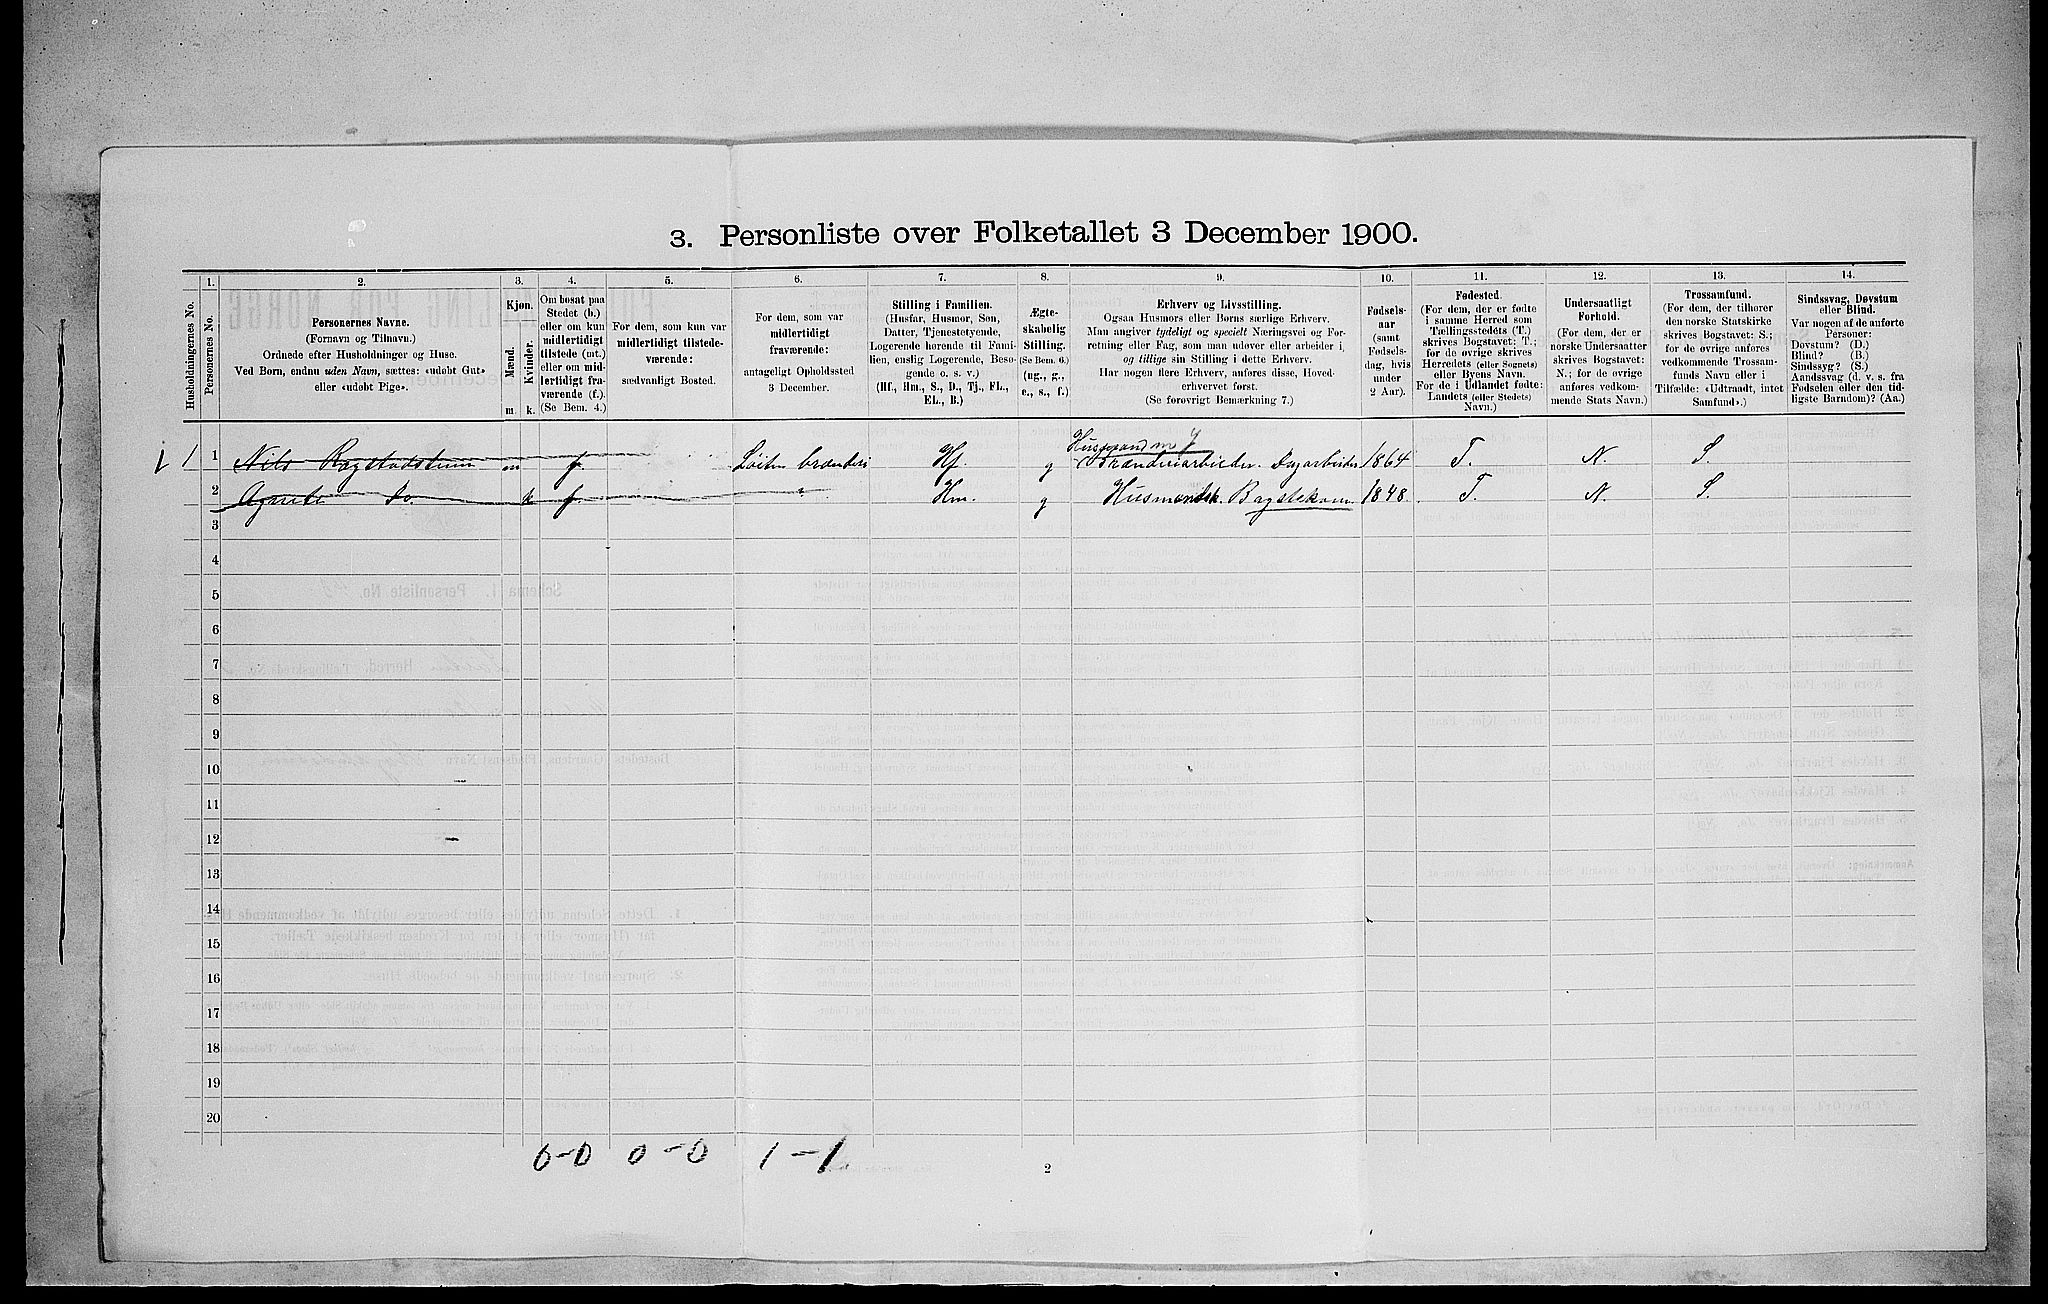 3. Personliste over Folketallet 3 December 1900.
1. 2. 3. 4. 5. 6. 7. 8. 9. 10. 11. 12. 13. 14.
Husholdningernes No.
Personernes No.
Personernes Navne.
(Fornavn og Tilnavn.)
Ordnede efter Husholdninger og Huse.
Ved Børn, endnu uden Navn, sættes: «udøbt Gut»
eller «udøbt Pige».
Kjøn.
Mænd.
Kvinder.
m. k.
Om bosat paa
Stedet (b.)
eller om kun
midlertidigt
tilstede (mt.)
eller om mid-
lertidigt fra-
værende (f.).
(Se Bem. 4.)
For dem, som kun var
midlertidigt tilstede-
værende:
sædvanligt Bosted.
For dem, som var
midlertidigt
fraværende:
antageligt Opholdssted
3 December.
Stilling i Familien.
(Husfar, Husmor, Søn,
Datter, Tjenestetyende,
Logerende hørende til Fami-
lien, enslig Logerende, Besø-
gende o. s. v.)
(Hf., Hm., S., D., Tj., FL.,
EL., B.)
Ægte-
skabelig
Stilling.
(Se Bem. 6.)
(ug., g.,
e., s., f.)
Erhverv og Livsstilling.
Ogsaa Husmors eller Børns særlige Erhverv.
Man angiver tydeligt og specielt Næringsvei og For-
retning eller Fag, som man udøver eller arbeider i,
og tillige sin Stilling i dette Erhverv.
Har nogen flere Erhverv, anføres disse, Hoved-
erhvervet først.
(Se forøvrigt Bemærkning 7.)
Fødsels-
aar
(samt
Fødsels-
dag, hvis
under
2 Aar).
Fødested.
(For dem, der er fødte
i samme Herred som
Tællingsstedets (T.)
skrives Bogstavet: T.;
for de øvrige skrives
Herredets (eller Sognets)
eller Byens Navn.
For de i Udlandet fødte:
Landets (eller Stedets)
Navn.)
Undersaatligt
Forhold.
(For dem, der er
norske Undersaatter
skrives Bogstavet:
N.; for de øvrige
anføres vedkom-
mende Stats Navn.)
Trossamfund.
(For dem, der tilhører
den norske Statskirke
skrives Bogstavet: S.;
for de øvrige anføres
vedkommende Trossam-
funds Navn eller i
Tilfælde: «Udtraadt, intet
Samfund».)
Sindssvag, Døvstum
eller Blind.
Var nogen af de anførte
Personer:
Døvstum? (D.)
Blind? (B.)
Sindssyg? (S.)
Aandssvag (d. v. s. fra
Fødselen eller den tid-
ligste Barndom)? (Aa.)
Husmand m J
1 1 Nils Bagstadstuen m f Løiten brænderi Hf. g Brænderiarbeider. Dagarbeider 1864 T. N. S.
2 Agnete Do. k f " Hm. g Husmandsk. Bagstekone 1848. T. N. S.
3
4
5
6
7
8
9
10
11
12
13
14
15
16
17
18
19
20
0-0 0-0 1-1.
2